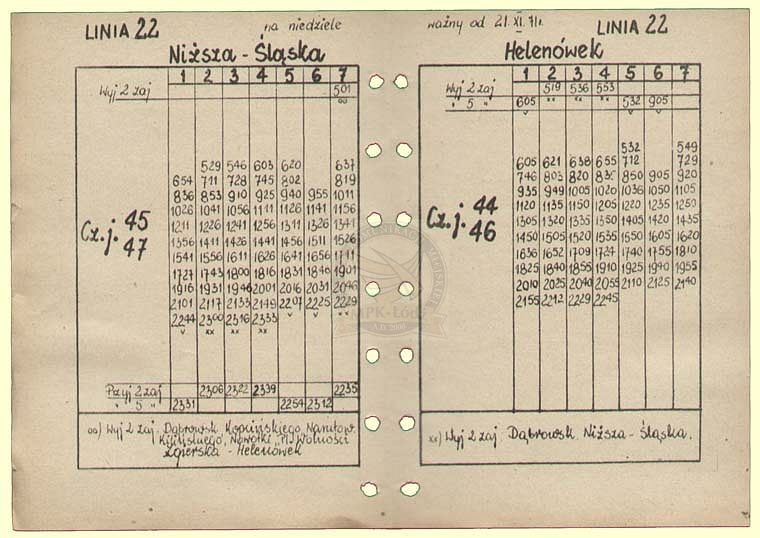 LINIA 22 na niedziele
Niższa - Śląska
1 2 3 4 5 6 7
Wyj 2 zaj 501
oo
529 546 603 620 637
654 711 728 745 802 819
836 853 910 925 940 955 1011
1026 1041 1056 1111 1126 1141 1156
Cz.j. 45 47
1211 1226 1241 1256 1311 1326 1341
1356 1411 1426 1441 1456 1511 1526
1541 1556 1611 1626 1641 1656 1711
1727 1743 1800 1816 1831 1846 1901
1916 1931 1946 2001 2016 2031 2046
2101 2117 2133 2149 2207 2225 2229
v v xx
2244 2300 2316 2333
v xx xx xx
Przyj 2 zaj 2306 2322 2339 2235
" 5 " 2331 2254 2312
oo) Wyj 2 zaj. Dąbrowsk. Kopcińskiego, Narutow.
Kilińskiego, Nowotki, Pl. Wolności
Zgierska - Helenówek
ważny od 21.XI.71r. LINIA 22
Helenówek
1 2 3 4 5 6 7
Wyj 2 zaj 519 536 553
" 5 " 605 xx xx xx 532 905
v v v
532 549
605 621 638 655 712 729
746 803 820 835 850 905 920
935 949 1005 1020 1036 1050 1105
Cz.j. 44 46
1120 1135 1150 1205 1220 1235 1250
1305 1320 1335 1350 1405 1420 1435
1450 1505 1520 1535 1550 1605 1620
1636 1652 1709 1724 1740 1755 1810
1825 1840 1855 1910 1925 1940 1955
2010 2025 2040 2055 2110 2125 2140
2155 2212 2229 2245
xx) Wyj 2 zaj. Dąbrowsk. Niższa - Śląska.
MPK-Łódź
A.D. 2008